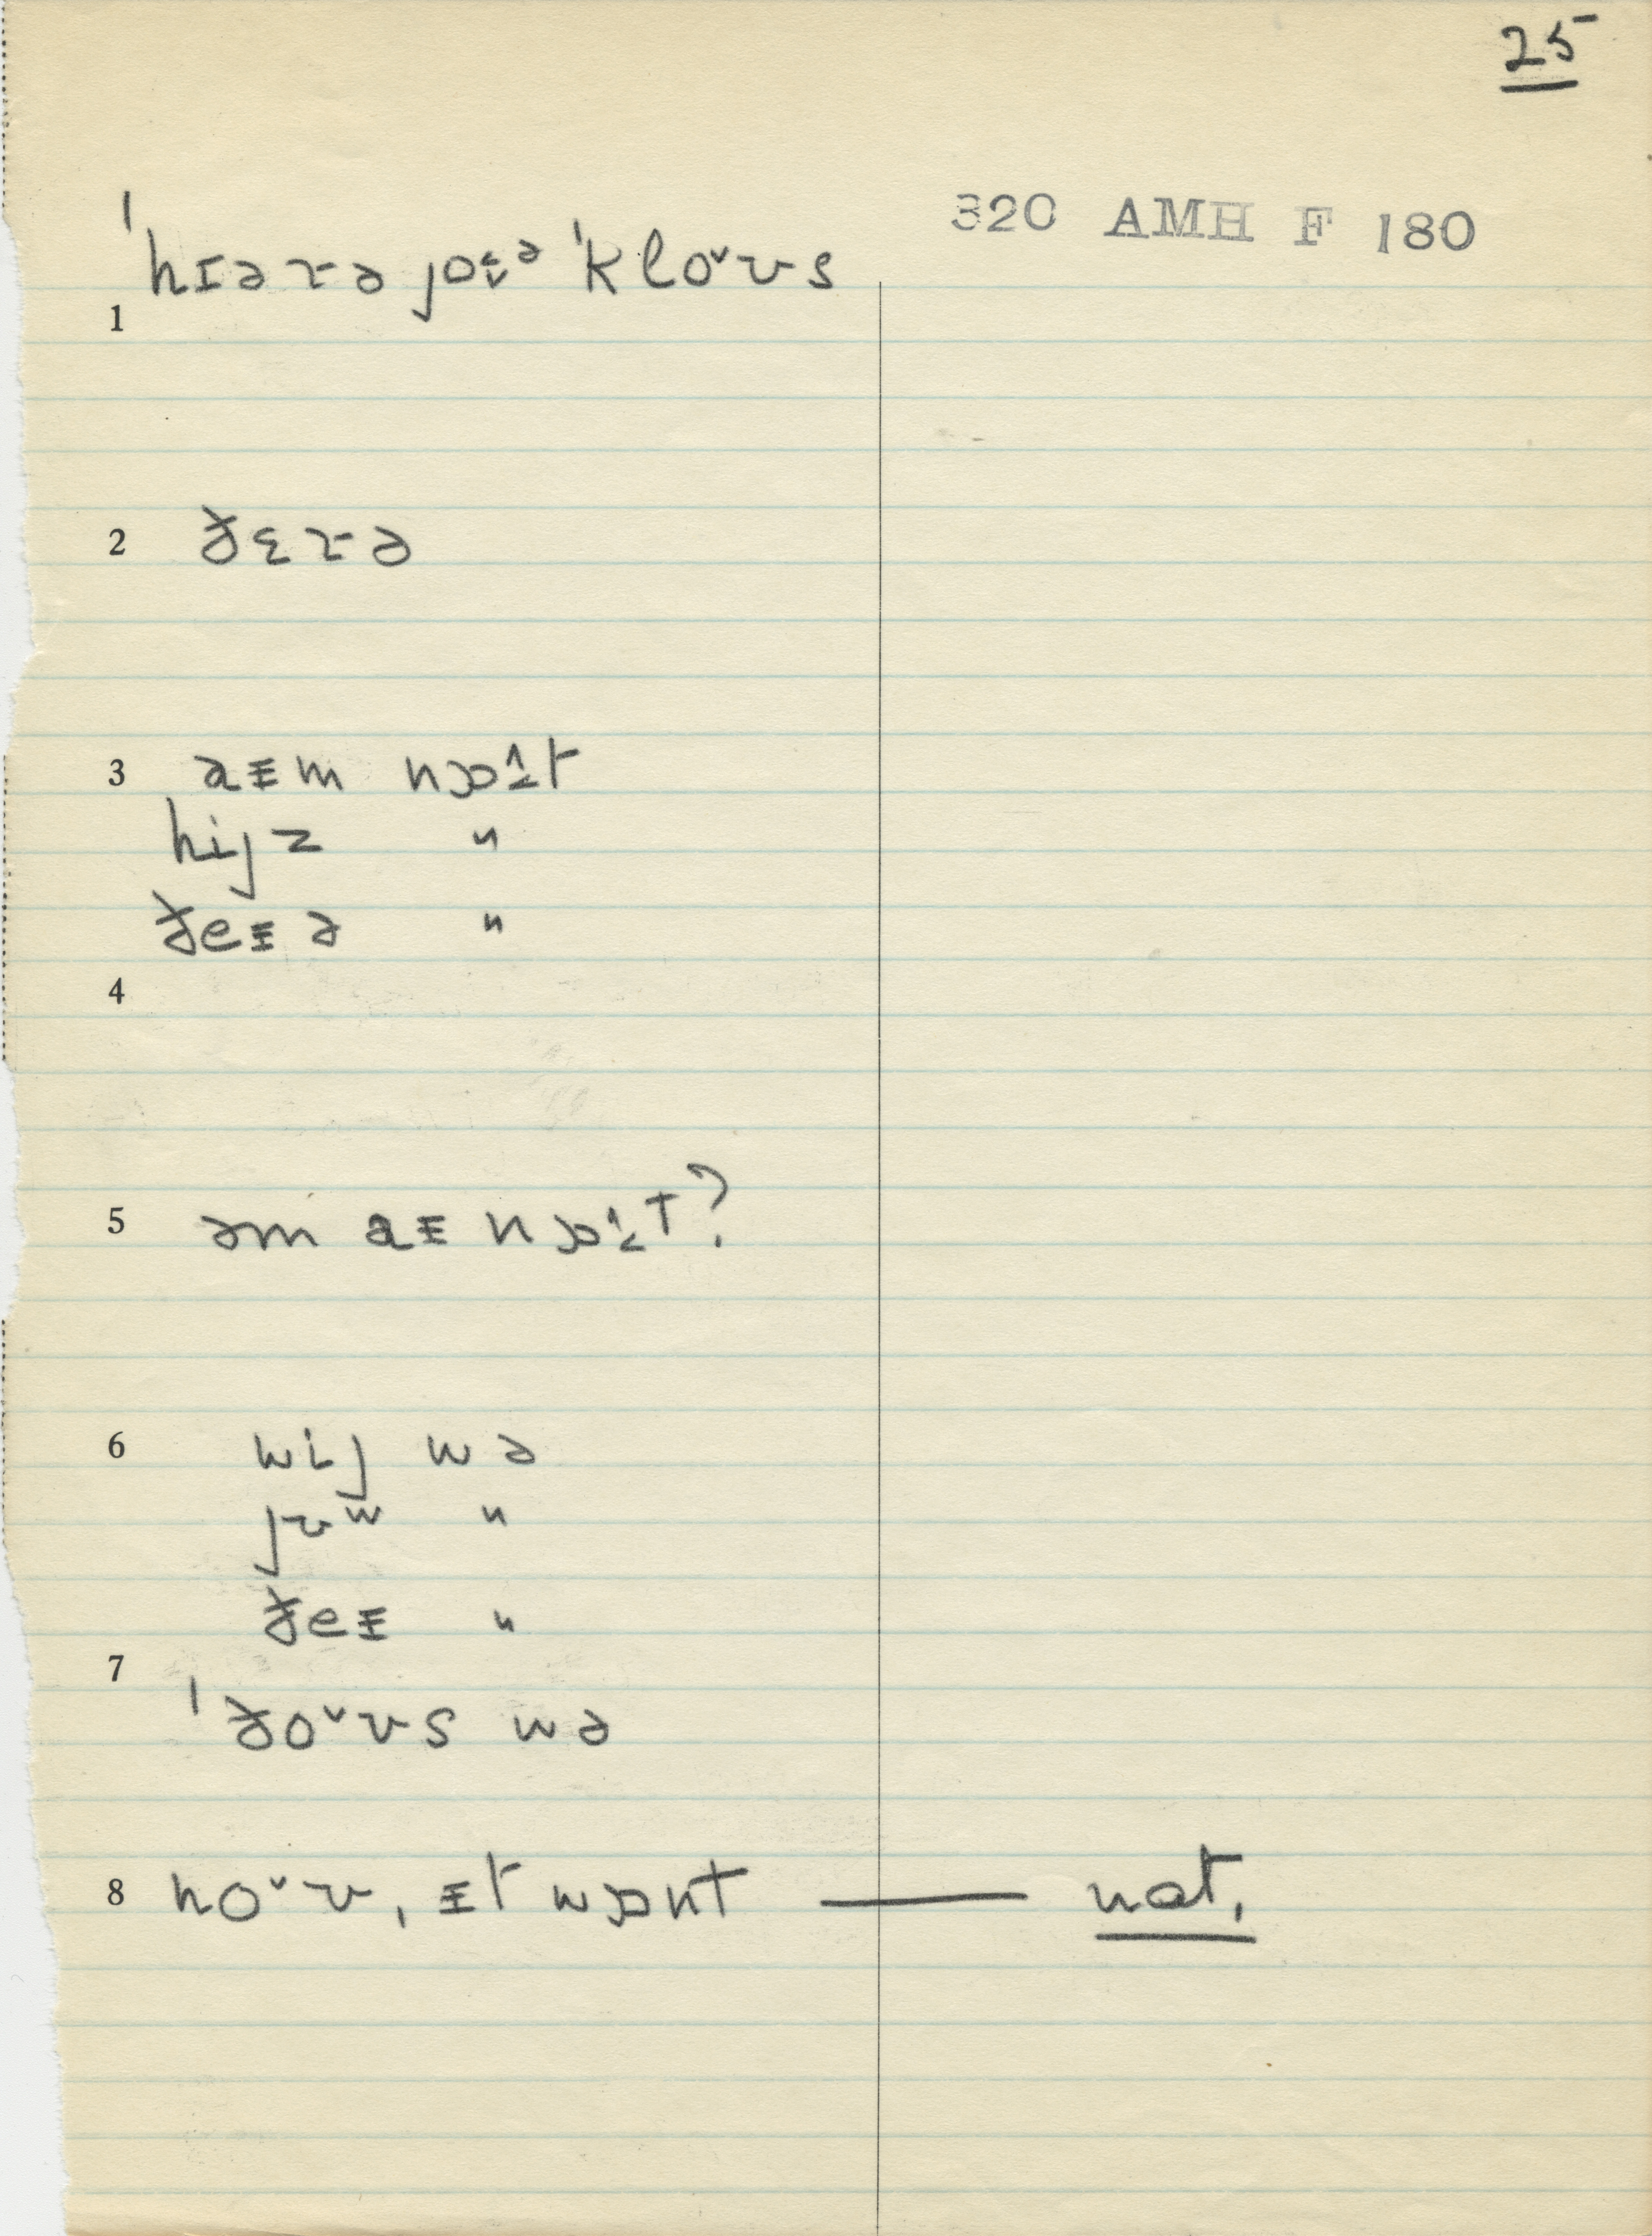 25
320 AMH F 180
ˈhɪəɤə joɛ̬ᵊ ˈkloˇʊs
1
2 ðɛɤə
3 aɪm nɒɪt
hijz "
ðeɪə "
4
5 əm aɪ nɒɪt?
6 wij wə
jʊw "
ðeɪ "
7
ˈðoˇʊs wə
8 noˇʊ, ɪt wɒnt — not.